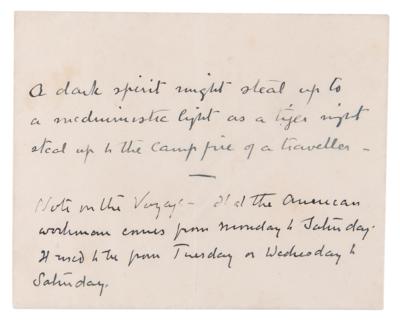 A dark spirit might steal up to
a mediumistic light as a tiger might
steal up to the camp fire of a traveller –
Note on the Voyage – the American
workman comes from Monday to Saturday.
It used to be from Tuesday or Wednesday to
Saturday.